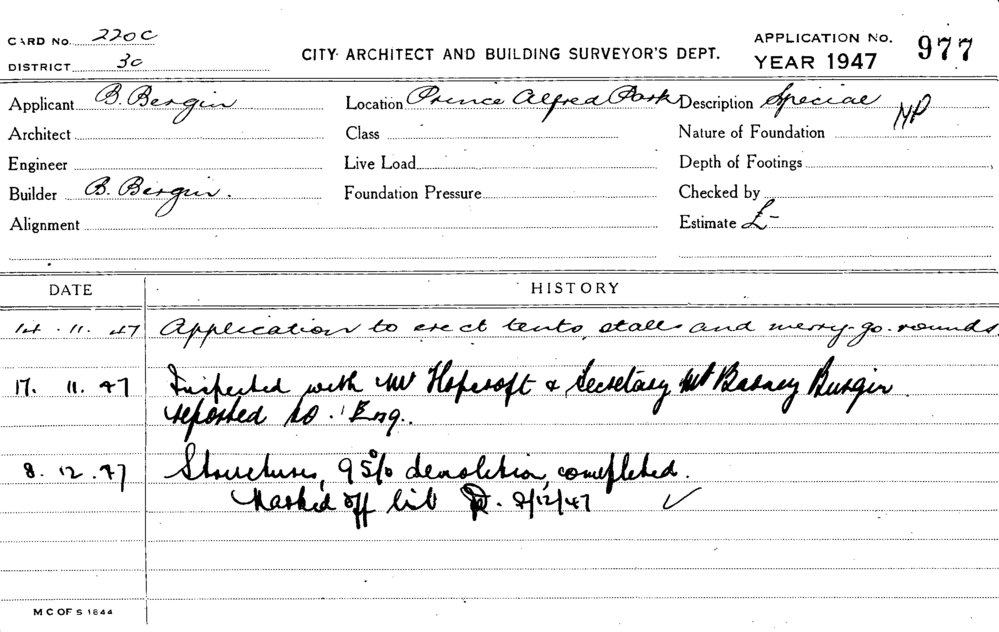 CARD No. 220C
DISTRICT 30
CITY ARCHITECT AND BUILDING SURVEYOR'S DEPT.
APPLICATION No. 977
YEAR 1947
Applicant B. Bergin Location Prince Alfred Park Description Special
Architect Class Nature of Foundation NP
Engineer Live Load Depth of Footings
Builder B. Bergin. Foundation Pressure Checked by
Alignment Estimate £-
DATE HISTORY
14.11.47 Application to erect tents, stalls and merry-go-rounds
17.11.47 Inspected with Mr Hopcroft & Secretary Mr Barney Burgin
reported to Eng.
8.12.47 Structures, 95% demolition, completed.
Marked off list 8/12/47 ✓
M C OF S 1844